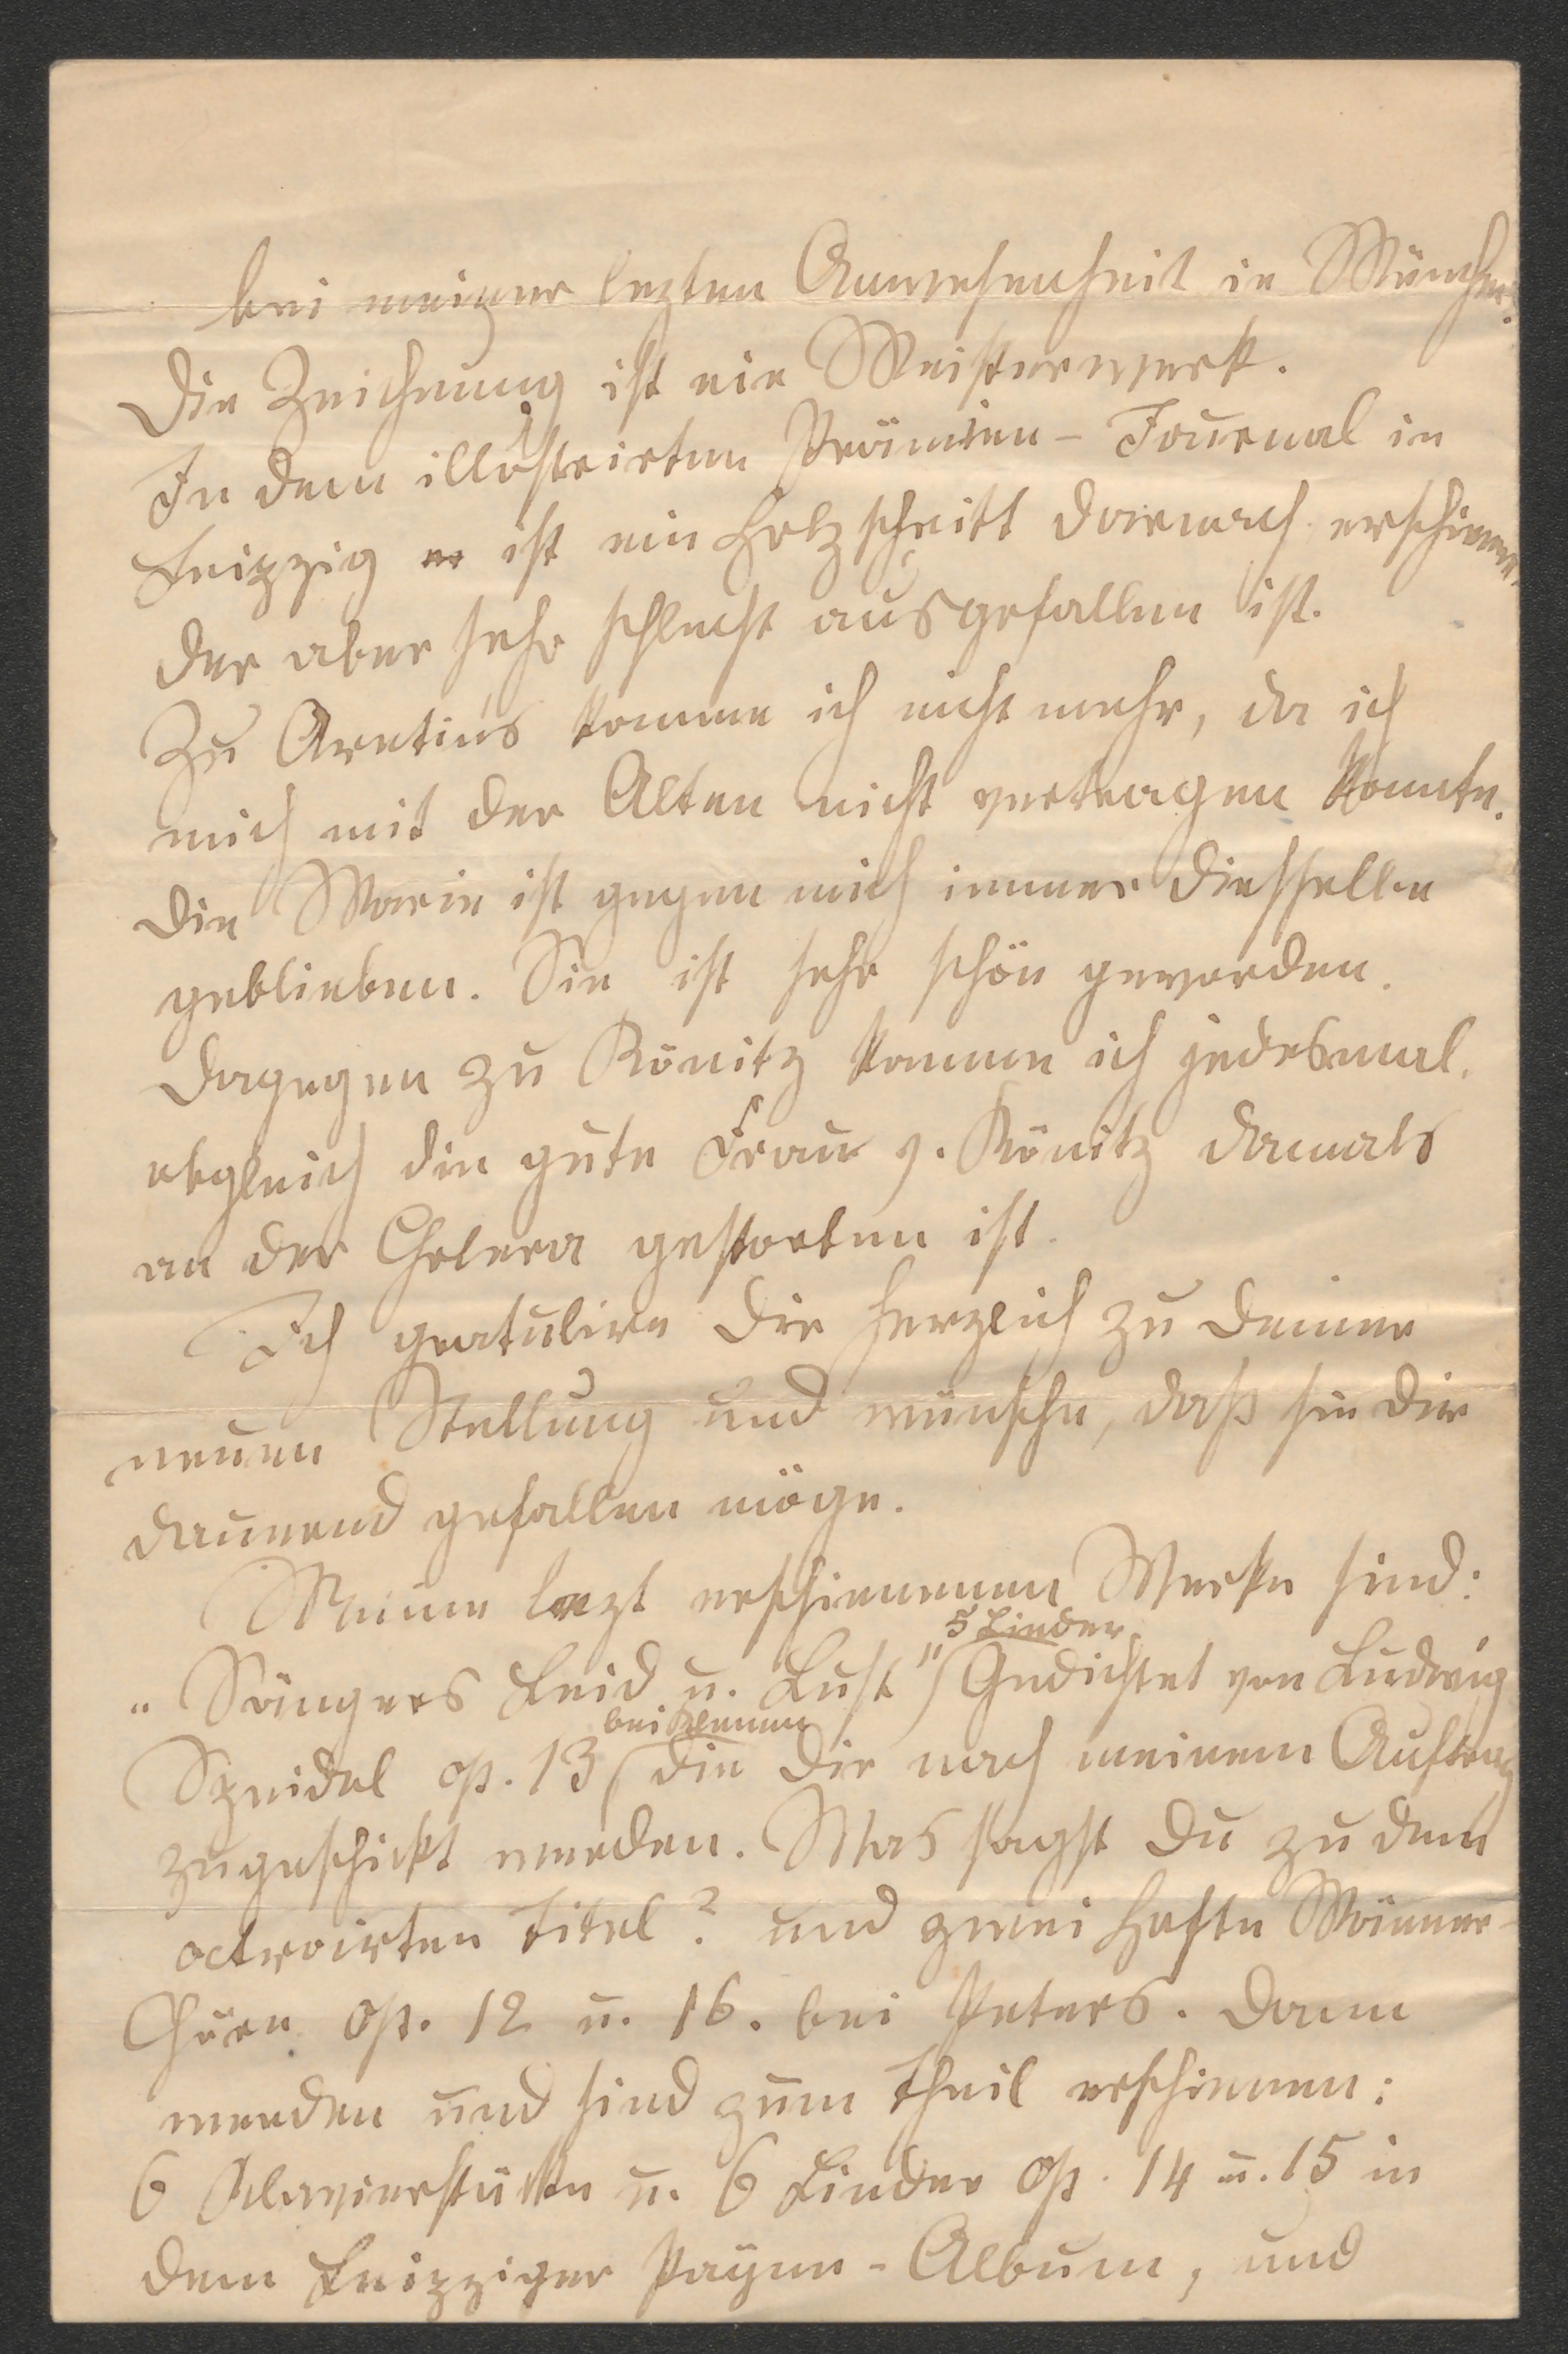 bei meiner lezten Anwesenheit in München.
Die Zeichnung ist ein Meisterwerk.
In dem illustrirten Prämien-Journal in
Leipzig er ist ein Holzschnitt darnach erschienen,
der aber sehr schlecht ausgefallen ist.
Zu Aretin's komme ich nicht mehr, da ich
mich mit der Alten nicht vertragen konnte.
Die Marie ist gegen mich immer diesselbe
geblieben. Sie ist sehr schön geworden.
Dagegen zu Könitz komme ich jedesmal,
obgleich die gute Frau v. Könitz damals
an der Cholera gestorben ist.
Ich gratulire Dir herzlich zu Deiner
neuen Stellung und wünsche, daß sie Dir
dauernd gefallen möge.
Meine lezt erschienenen Werke sind:
5 Lieder
„Sängers Leid u. Lust" Gedichtet von Ludwig
bei Klemm
Speidel op. 13 die Dir nach meinem Auftrag
zugeschickt werden. Was sagst Du zu dem
octroirten Titel? und zwei Hefte Männer-
Chöre op. 12 u. 16. bei Peters. Dann
werden und sind zum Theil erschienen:
6 Klavierstücke u. 6 Lieder op. 14 u. 15 in
dem Leipziger Payne-Album, und